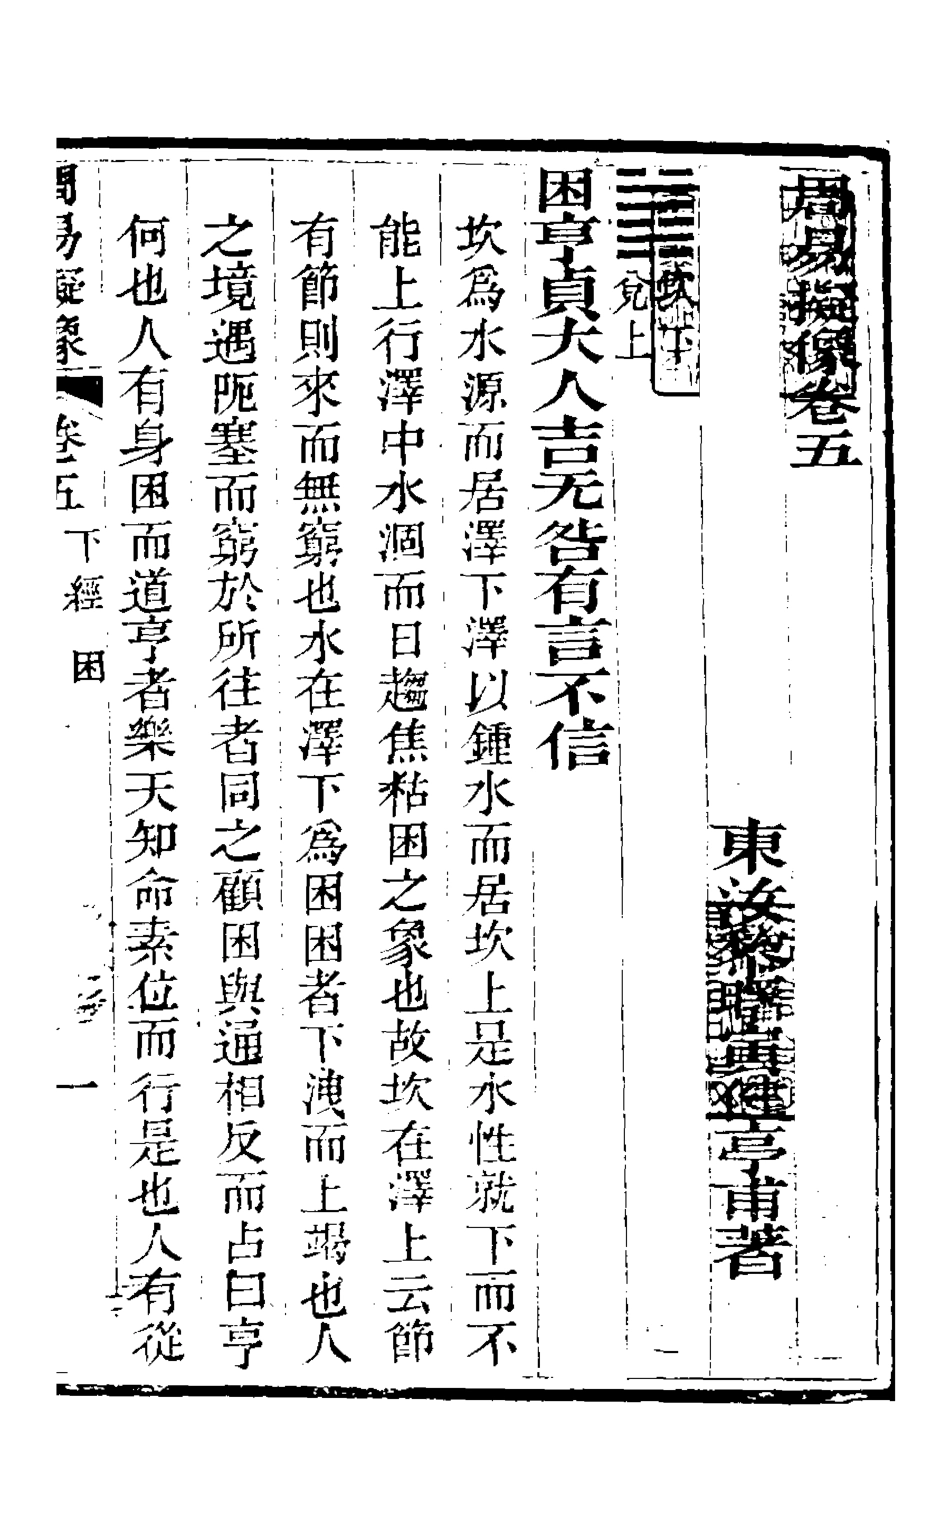 周易擬像卷五
東汝黎曙寅健亭甫著
坎下
兌上
困亨貞大人吉无咎有言不信
坎為水源而居澤下澤以鍾水而居坎上是水性就下而不
能上行澤中水涸而日趨焦粘困之象也故坎在澤上云節
有節則來而無窮也水在澤下為困困者下洩而上竭也人
之境遇阨塞而窮於所往者同之顧困與通相反而占曰亨
何也人有身困而道亨者樂天知命素位而行是也人有從
周易擬像 卷五 下經 困 一